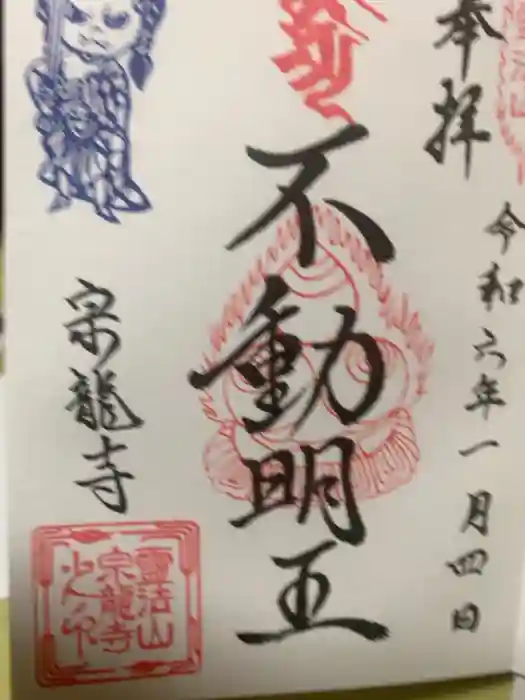 奉拝
令和六年一月四日
不動明王
宗龍寺
霊法山
宗龍寺
之印